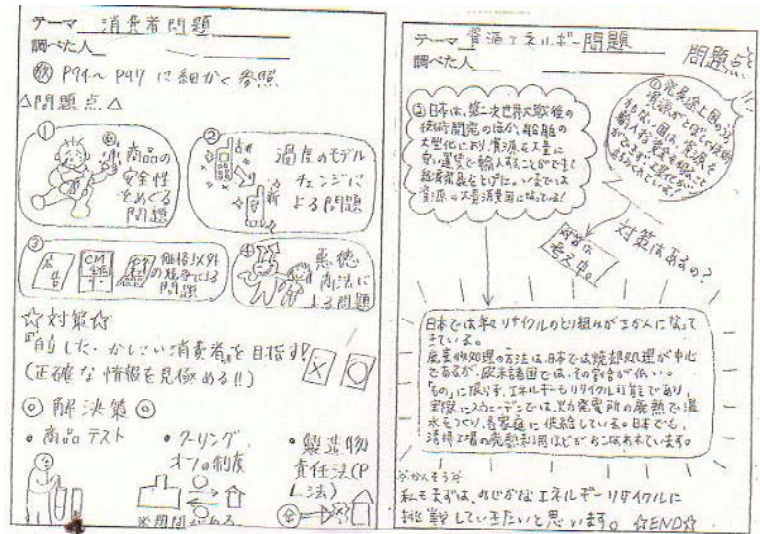 テーマ 消費者問題
調べた人
P94～P97 に細かく参照
△問題点△
①
商品の
安全性
をめぐる
問題
②
過度のモデル
チェンジに
よる問題
新
③
広告
CM
価格以外
の競争による
問題
④
悪徳
商法に
よる問題
☆対策☆
『自立した・かしこい消費者』を目指す!
(正確な情報を見極める!!)
× ○
◎解決策◎
・商品テスト
・クーリング
オフの制度
※期間がある
・製造物
責任法(P
L法)
テーマ 資源エネルギー問題
調べた人
問題点
①発展途上国のうち
資源がとぼしく
②日本は、第二次世界大戦後の
技術開発のほか、船舶の
大型化により、資源を大量に
安い運賃で輸入することができて
経済発展をとげた。いまでは
資源の大量消費国になっている!
対策は
考え中。
対策はあるの?
日本では年々リサイクルのとり組みがさかんになって
きている。
廃棄物処理の方法は、日本では焼却処理が中心
であるが、欧米諸国では、その割合が低い。
「もの」に限らず、エネルギーもリサイクル可能であり、
実際にスウェーデンでは、火力発電所の廃熱で温
水をつくり、各家庭に供給している。日本でも、
清掃工場の廃熱利用などがおこなわれています。
※かんそう※
私もまずは、みぢかなエネルギーリサイクルに
挑戦していきたいと思います。☆END☆